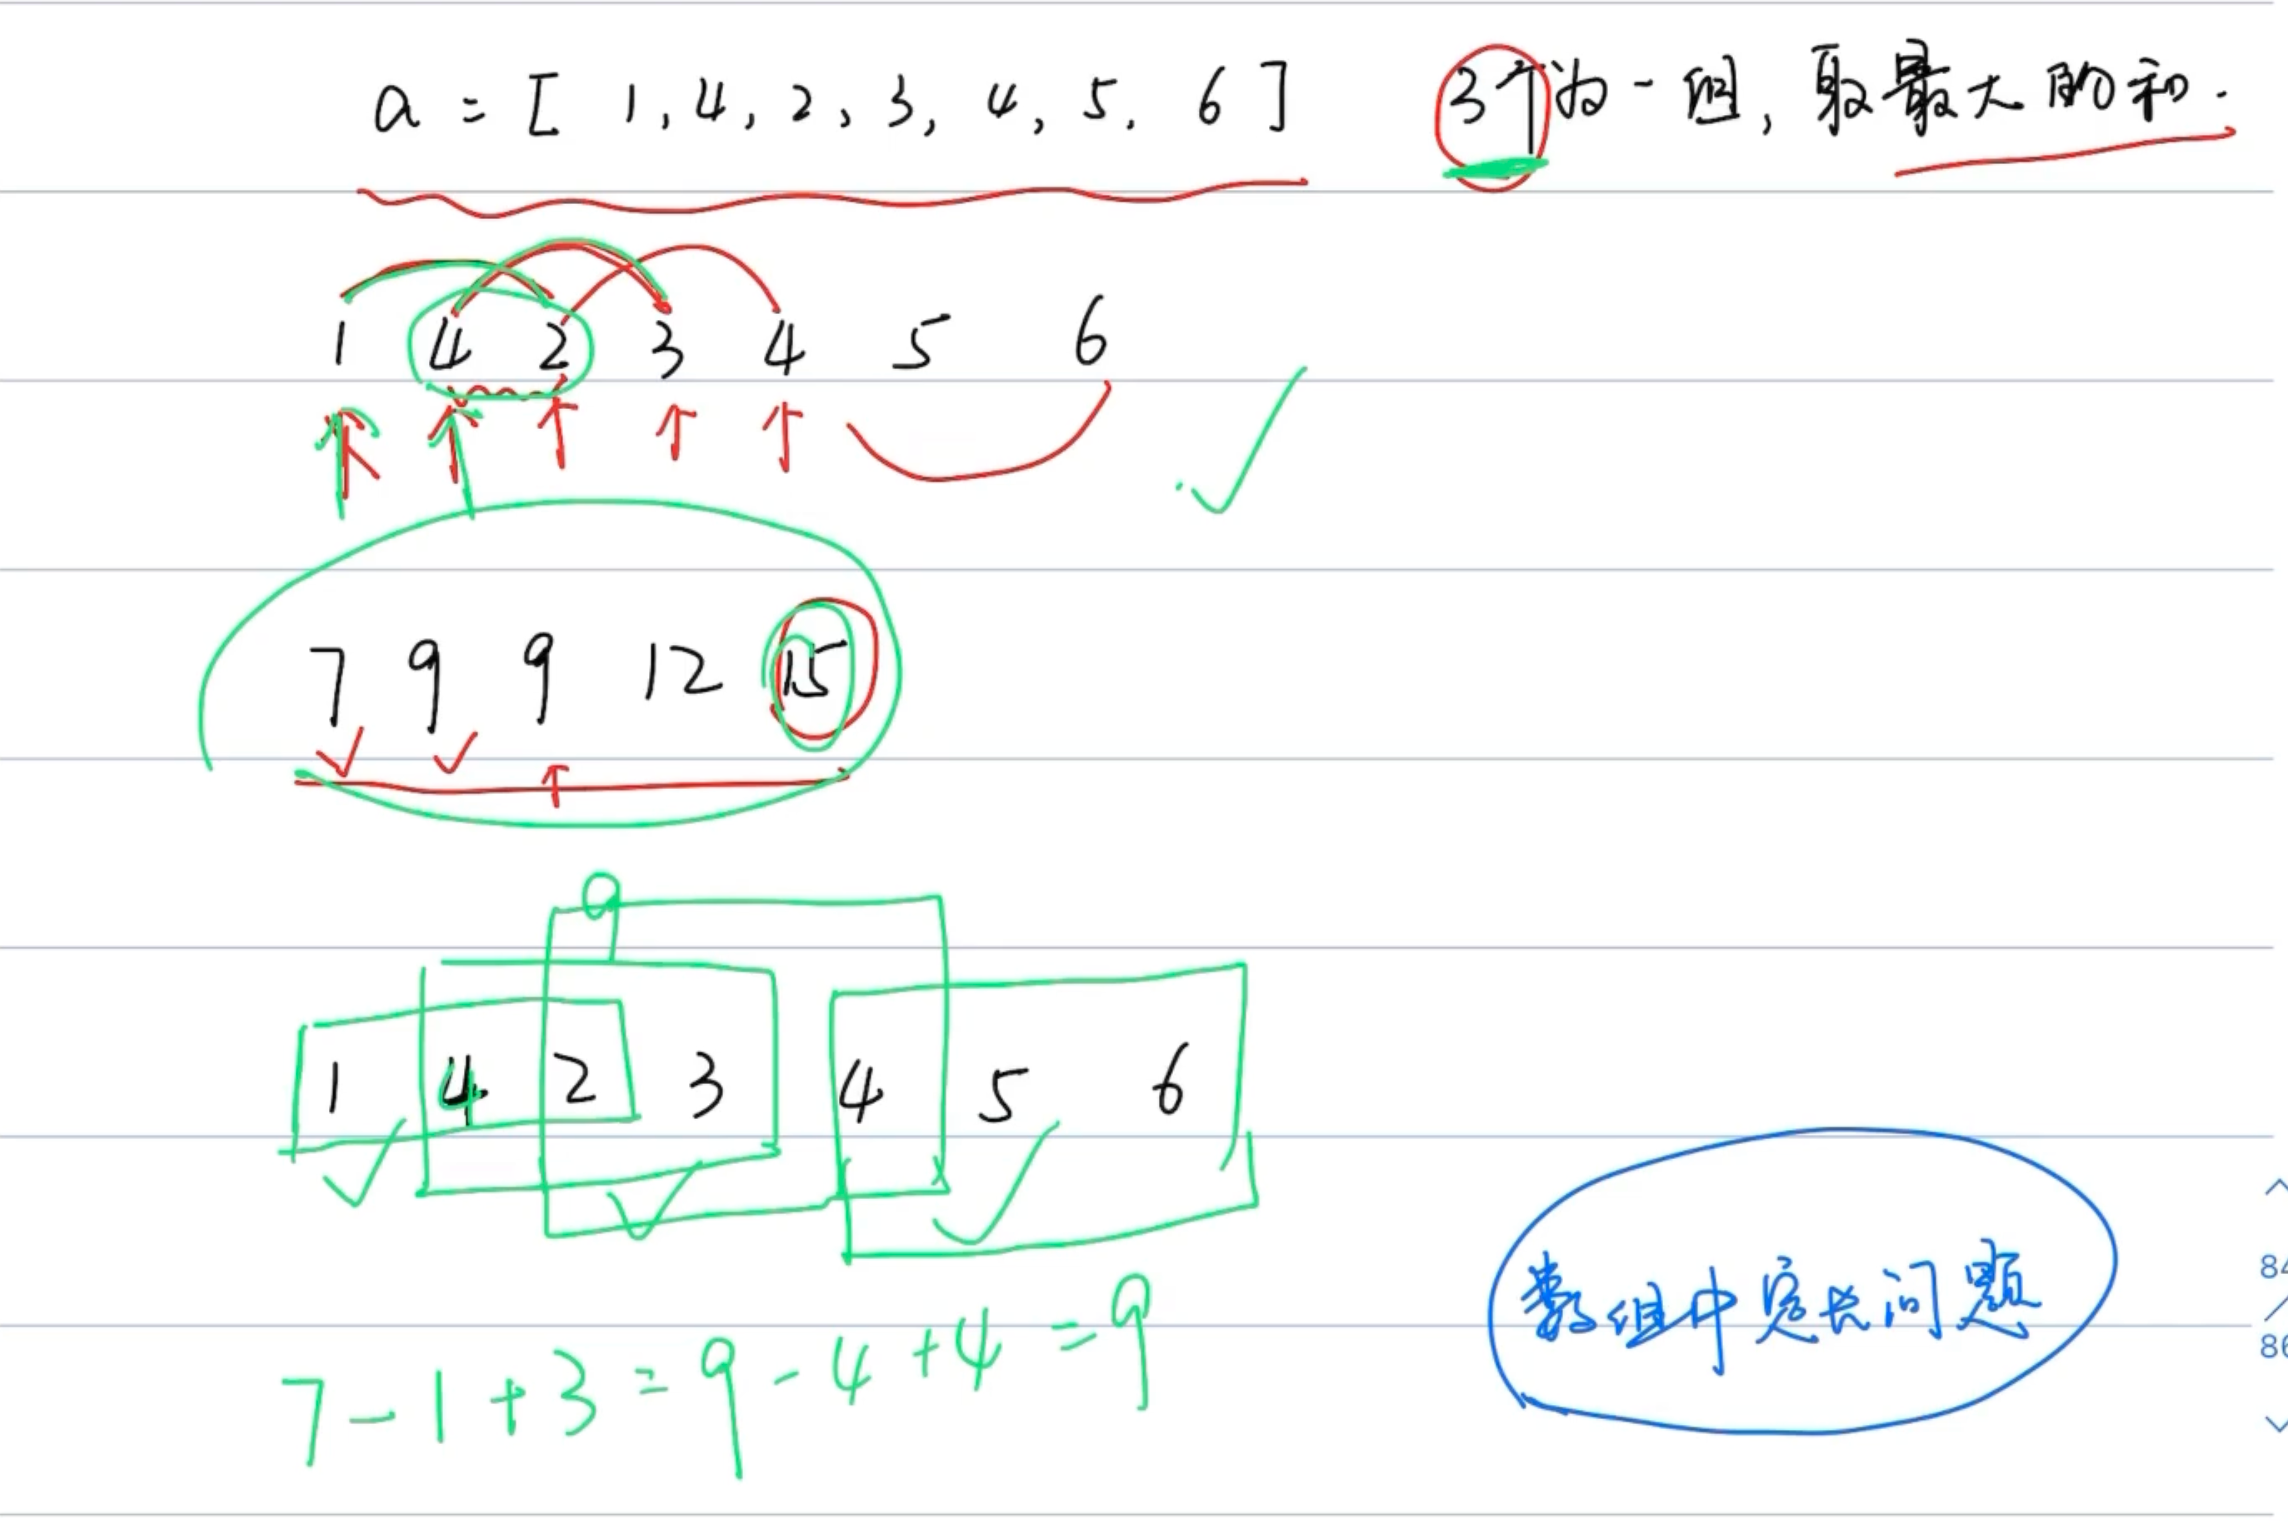 a = [ 1, 4, 2, 3, 4, 5, 6 ] 3个为一组, 取最大的和.
1 4 2 3 4 5 6
7 9 9 12 15
9
1 4 2 3 4 5 6
数组中定长问题
7-1+3=9-4+4=9
84
/
86